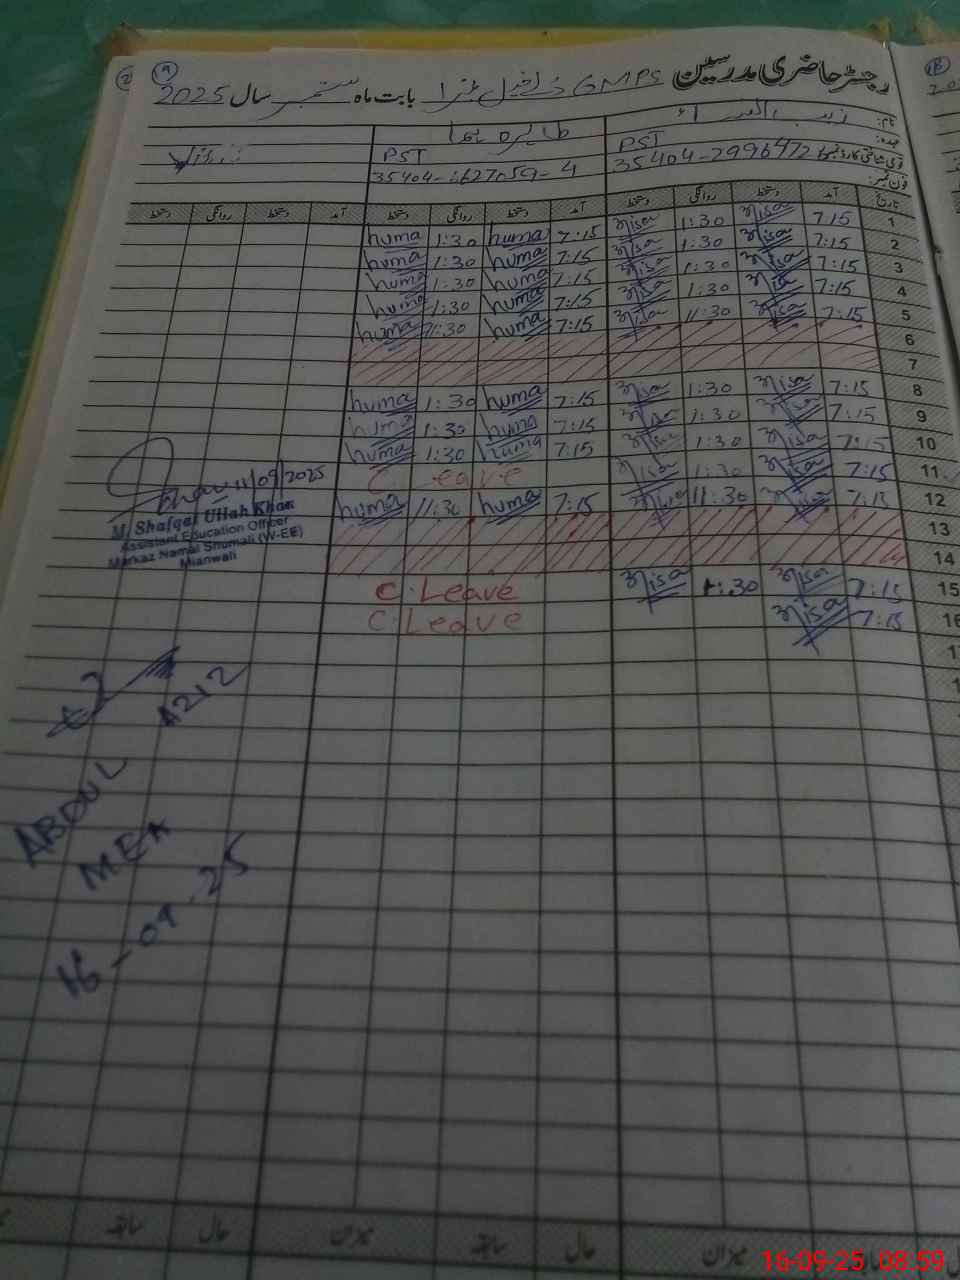 19
رجسٹر حاضری مدرسین GMPS بابت ماہ ستمبر سال 2025
نام:
عہدہ: PST PST
قومی شناختی کارڈ نمبر: 35404-2996472
فون نمبر:
تاریخ آمد دستخط روانگی دستخط آمد دستخط روانگی دستخط آمد دستخط روانگی دستخط
1 7:15 Nisa 1:30 Nisa 7:15 huma 1:30 huma
2 7:15 Nisa 1:30 Nisa 7:15 huma 1:30 huma
3 7:15 Nisa 1:30 Nisa 7:15 huma 1:30 huma
4 7:15 Nisa 1:30 Nisa 7:15 huma 1:30 huma
5 7:15 Nisa 11:30 Nisa 7:15 huma 11:30 huma
6
7
8 7:15 Nisa 1:30 Nisa 7:15 huma 1:30 huma
9 7:15 Nisa 1:30 Nisa 7:15 huma 1:30 huma
10 7:15 Nisa 1:30 Nisa 7:15 huma 1:30 huma
11 7:15 Nisa 1:30 Nisa C.Leave
12 7:15 Nisa 11:30 Nisa 7:15 huma 11:30 huma
13
14
15 7:15 Nisa 1:30 Nisa C.Leave
16 7:15 Nisa C.Leave
11/09/2025
M. Shafqat Ullah Khan
Assistant Education Officer
Markaz Namal Shumali (W-EE)
Mianwali
1212
ABDUL
MEA
16-09-25
میزان حال سابقہ میزان حال سابقہ
16-09-25 08:59